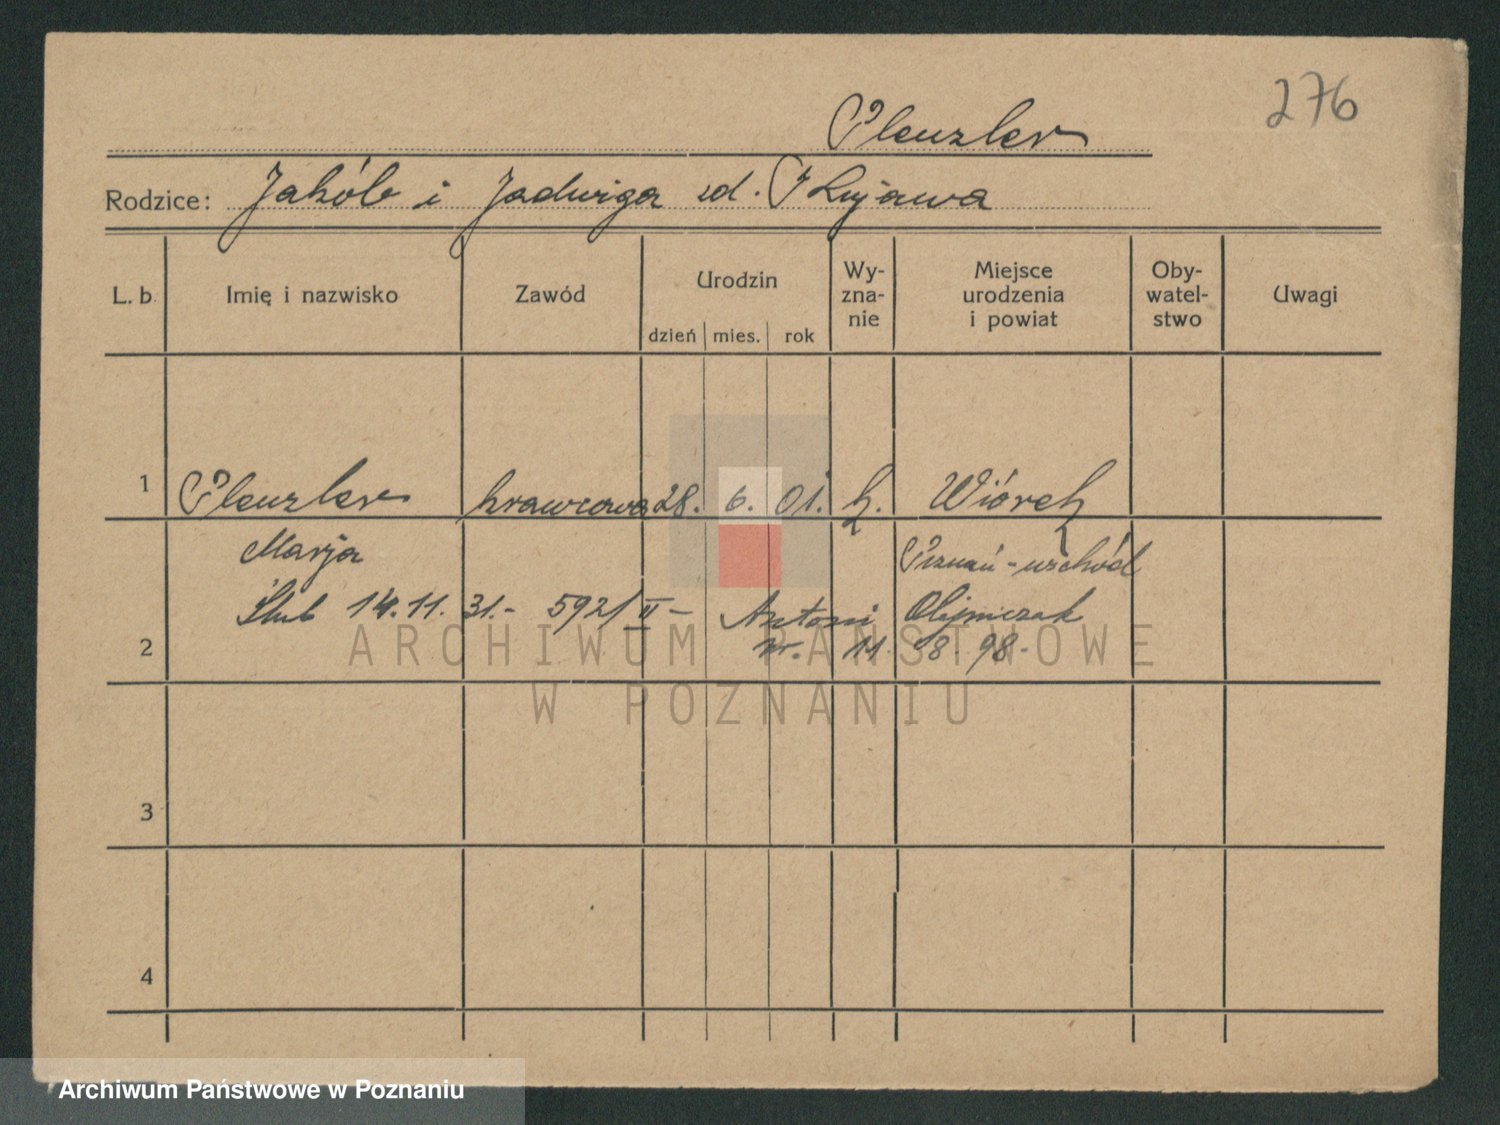 276
Plenzler
Rodzice: Jakób i Jadwiga zd. Kujawa
L. b. Imię i nazwisko Zawód Urodzin dzień mies. rok Wy-zna-nie Miejsce urodzenia i powiat Oby-watel-stwo Uwagi
1 Plenzler krawcowa 28. 6. 01. k. Wiórek
Marja Poznań-wschód
Ślub 14. 11. 31.- 592/II- Antoni Olejniczak
2 ur. 11. 8. 98.-
3
4
ARCHIWUM PAŃSTWOWE
W POZNANIU
Archiwum Państwowe w Poznaniu